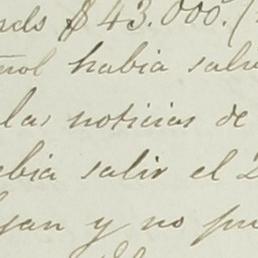 nds $ 43.000.
ñol habia sali
las noticias de
abia salir el 2
an y no pu